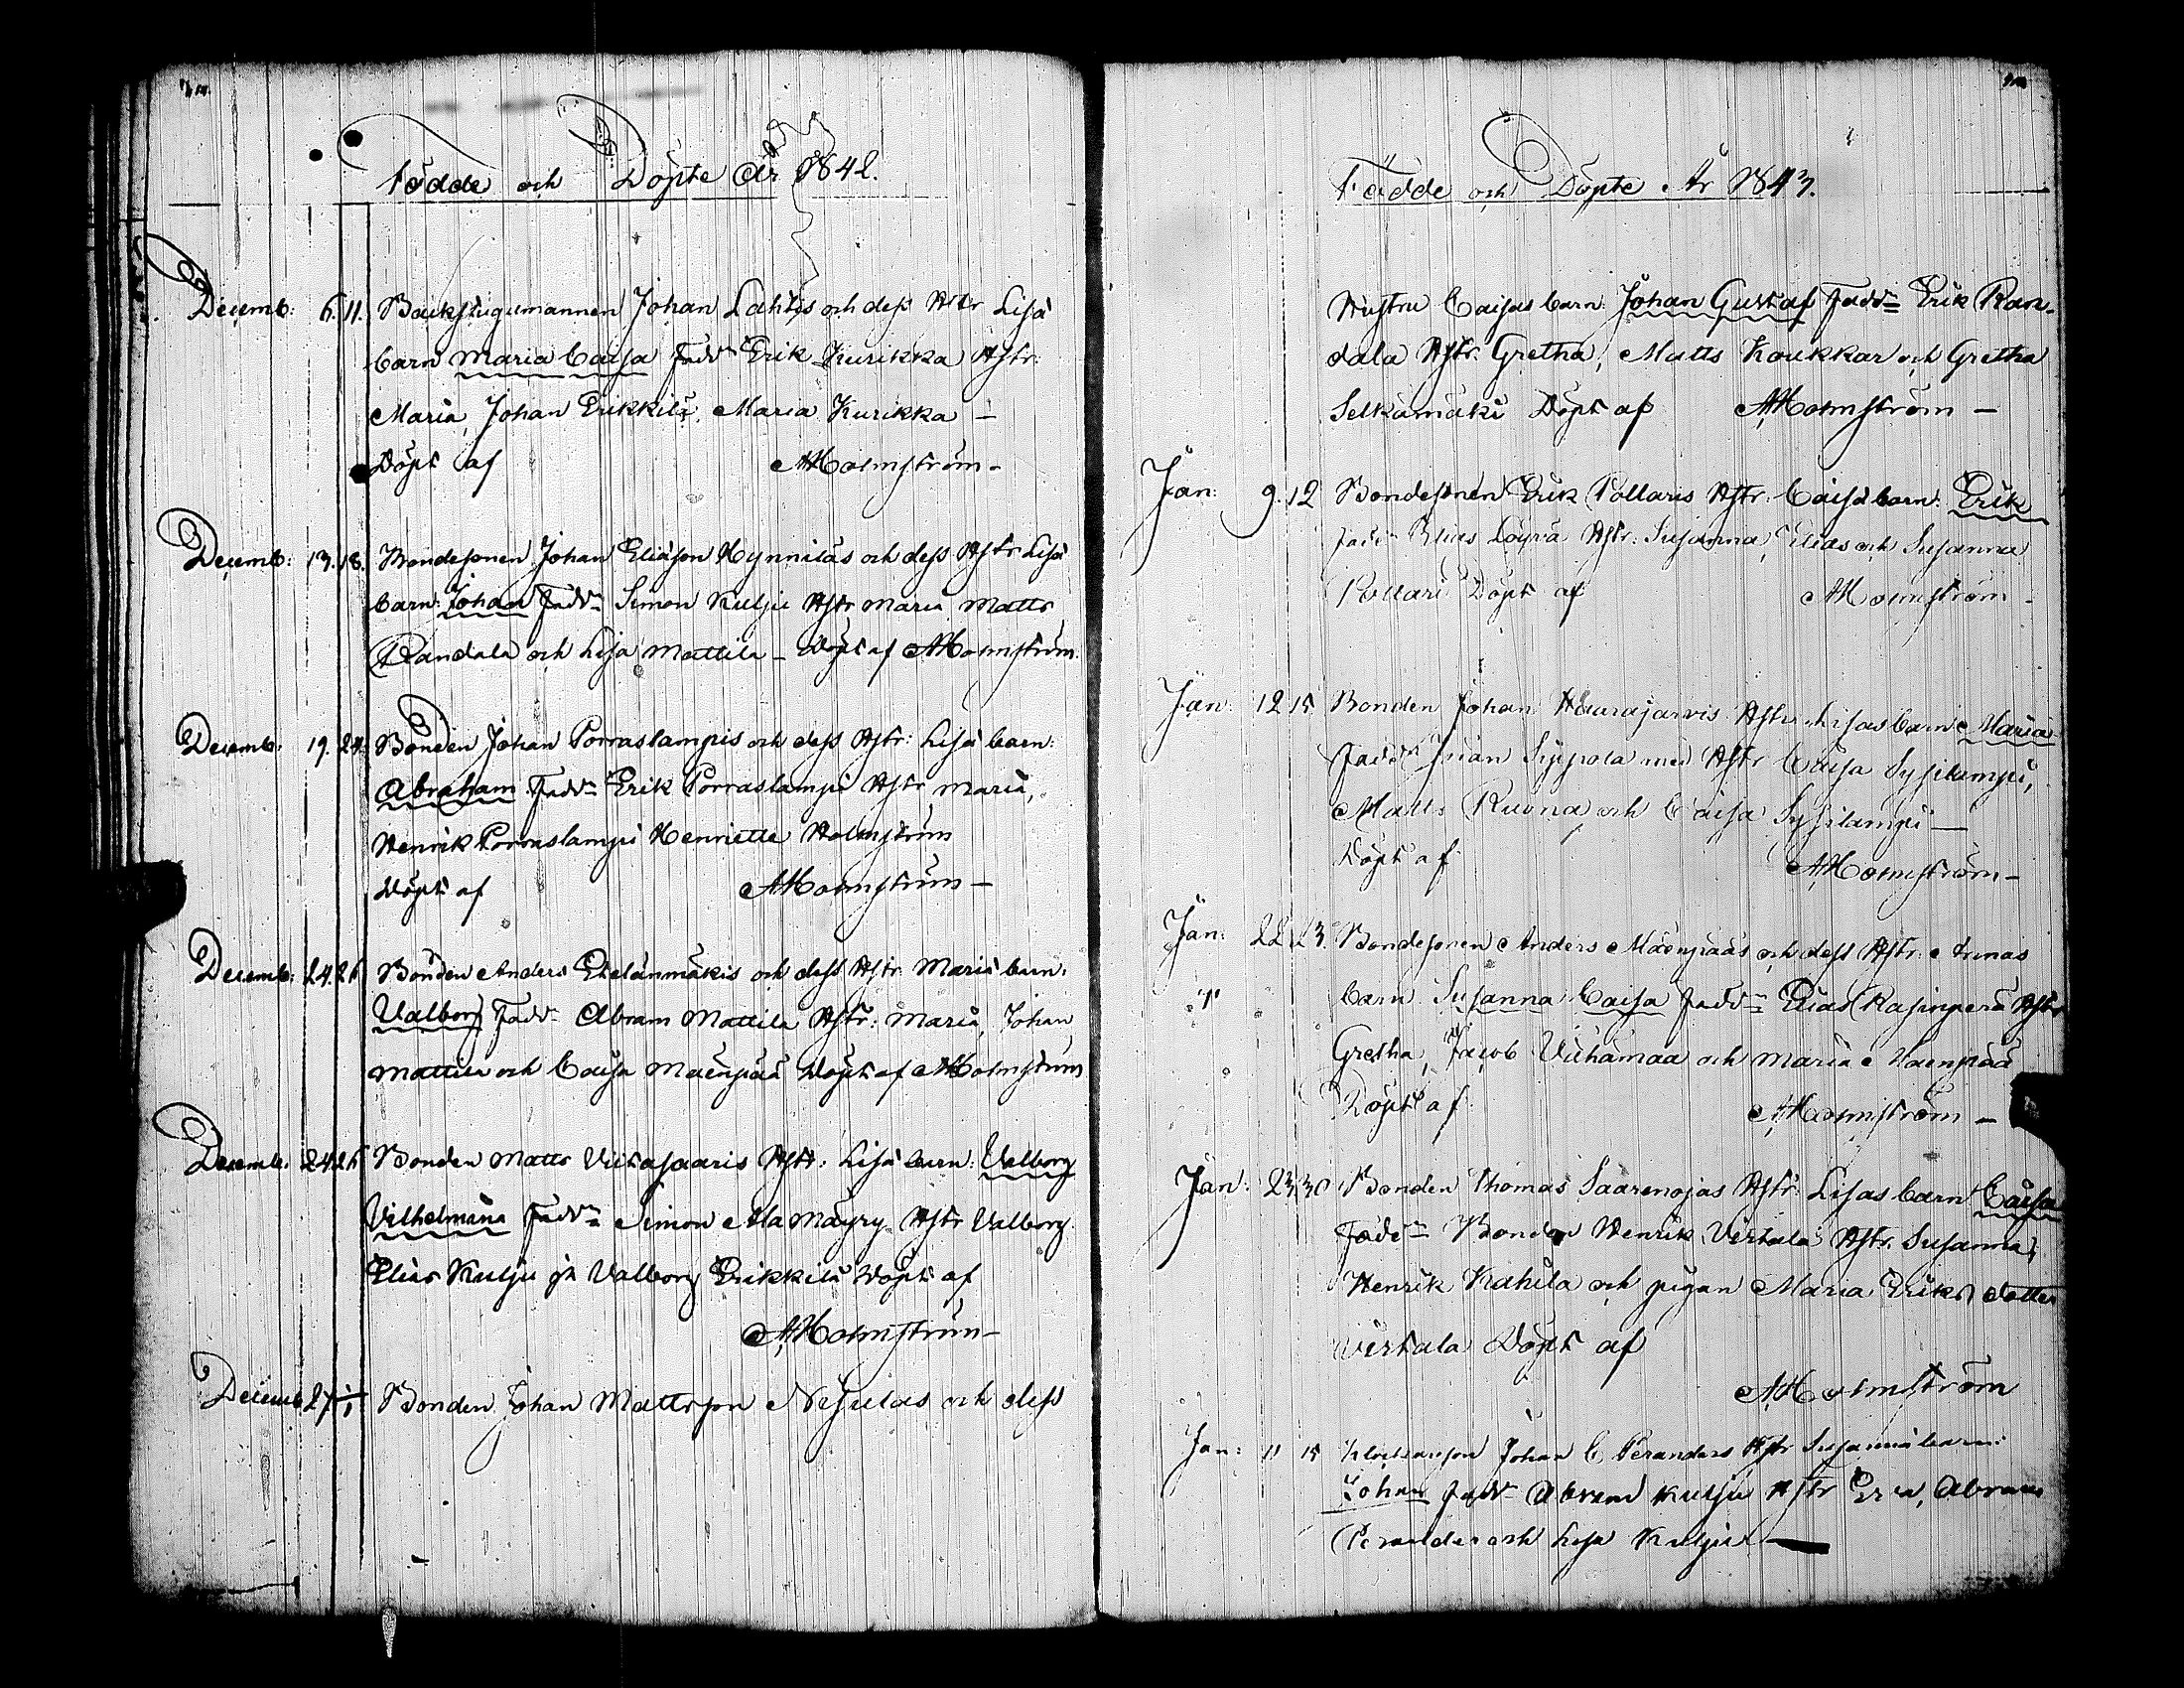 Födde och Döpte År 1842.
Decemb: 6. 11. Backstugumannen Johan Lahtis och dess Hstr Lisa
barn Maria Caisa Fadd:n Erik Kurikka Hstr:
Maria, Johan Erikkilä, Maria Kurikka –
Döpt af A Holmström –
Decemb: 13. 18. Bondesonen Johan Eliason Hynniläs och dess Hstr Lisa
barn: Johan Fadd:n Simon Kulju Hstr Maria Matts
Randala och Lisa Mattila – Döpt af A Holmström.
Decemb: 19. 24. Bonden Johan Porraslampis och dess Hstr: Lisa barn:
Abraham Fadd:n Erik Porraslampi Hstr Maria,
Henrik Porraslampi Henriette Holmström
Döpt af A Holmström –
Decemb: 24. 26 Bonden Anders Etelänmäkis och dess Hstr Maria barn:
Valborg Fadd:n Abram Mattila Hstr: Maria, Johan
Mattila och Caisa Mäenpää Döpt af A Holmström
Decemb: 24. 26 Bonden Matts Viitasaaris Hstr: Lisa barn: Valborg
Vilhelmina Fadd:n Simon Ala Mäyry Hstr Valborg
Elias Kulju och Valborg Erikkilä Döpt af
A Holmström –
Decemb 27 1/1 Bonden Johan Mattsson Nisulas och dess
Födde och Döpte År 1843.
Hustru Caisas barn: Johan Gustaf Fadd:n Erik Ran-
dala Hstr: Gretha, Matts Koukkar och Gretha
Selkämäki Döpt af A Holmström –
Jan: 9. 12 Bondesonen Erik Pollaris Hstr: Caisa barn: Erik
Fadd:n Elias Löyvä Hstr: Susanna, Elias och Susanna
Pollari Döpt af A Holmström –
Jan: 12 15 Bonden Johan Haurajärvis Hstr Lisas barn Maria
Fadd:n Sippola med Hstr Caisa Sysilampi,
Matts Ruona och Caisa Sysilampi –
Döpt af A Holmström –
Jan: 22 23. Bondesonen Anders Mäenpääs och dess Hstr: Annas
barn Susanna Caisa Fadd:n Elias Rasinperä Hstr
Gretha, Jacob Viihamaa och Maria Mäenpää
Döpt af A Holmström –
Jan: 23. 30 Bonden Thomas Saarenojas Hstr: Lisas barn Caisa
Fadd:n Bonden Henrik Virtala Hstr. Susanna,
Henrik Kahila och pigan Maria Eriksdotter
Virtala Döpt af
A Holmström
Jan: 11 15 Johan C Peranders Hstr Susanna barn:
Johan Fadd:n Abram Kulju Hstr Eva, Abram
Perander och Lisa Kulju –